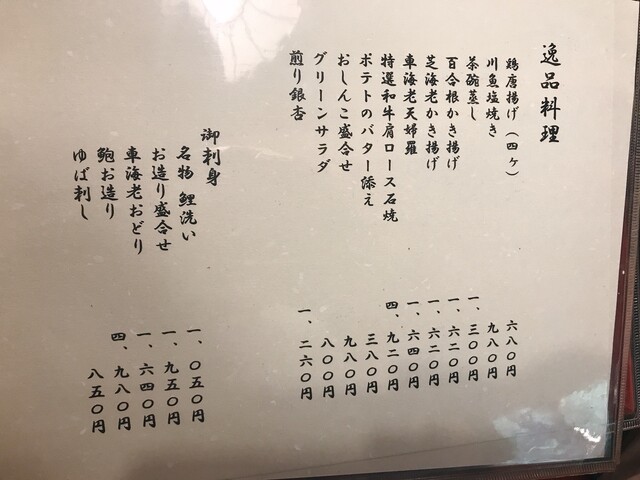 逸品料理
鶏唐揚げ(四ヶ) 六八〇円
川魚塩焼き 九八〇円
茶碗蒸し 一、三〇〇円
百合根かき揚げ 一、六二〇円
芝海老かき揚げ 一、六二〇円
車海老天婦羅 一、六四〇円
特選和牛肩ロース石焼 四、九二〇円
ポテトのバター添え 三八〇円
おしんこ盛合せ 九八〇円
グリーンサラダ 八〇〇円
煎り銀杏 一、二六〇円
御刺身
名物 鯉洗い 一、〇五〇円
お造り盛合せ 一、九五〇円
車海老おどり 一、六四〇円
鮑お造り 四、九八〇円
ゆば刺し 八五〇円